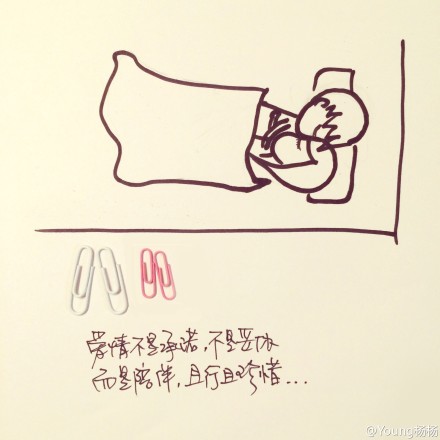 爱情不是承诺，不是妥协
而是陪伴，且行且珍惜...
@Young杨杨